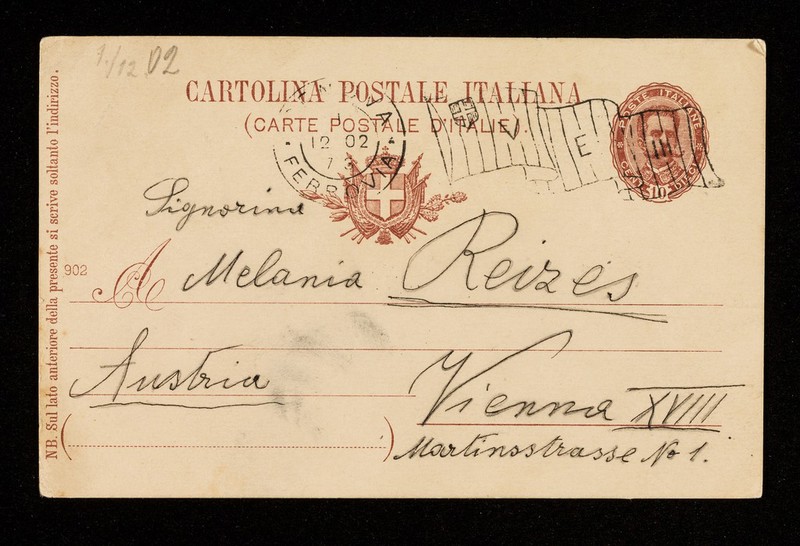 1./12 02
CARTOLINA POSTALE ITALIANA
(CARTE POSTALE D'ITALIE)
POSTE ITALIANE
10
12 02
FERROVIA
V E III
Signorina
902
A Melania Reizes
Austria
Vienna XVIII
Martinsstrasse No 1.
NB. Sul lato anteriore della presente si scrive soltanto l'indirizzo.